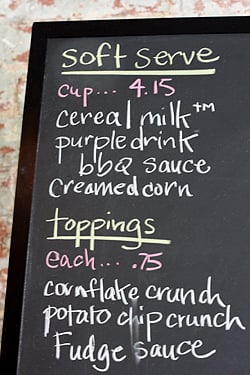 soft serve
cup... 4.15
cereal milk™
purple drink
bbQ sauce
Creamed corn
toppings
each... .75
cornflake crunch
potato chip crunch
Fudge sauce